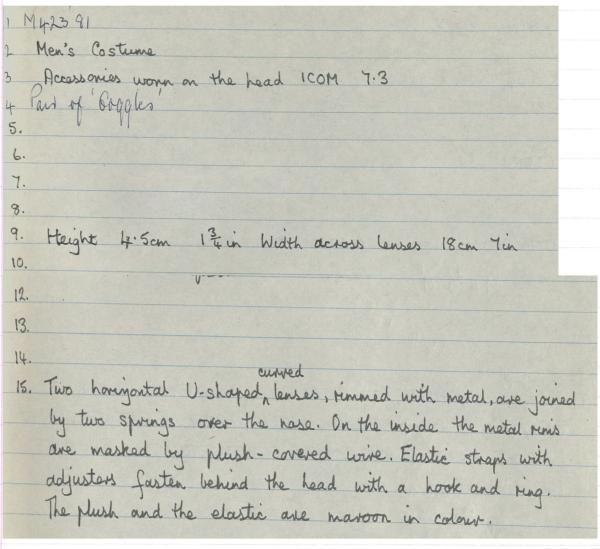 1 M423 91
2 Men's Costume
3 Accessories worn on the head ICOM 7.3
4 Pair of 'Goggles'
5.
6.
7.
8.
9. Height 4.5cm 1¾in Width across lenses 18cm 7in
10.
12.
13.
14.
15. Two horizontal U-shaped curved lenses, rimmed with metal, are joined
by two springs over the nose. On the inside the metal rims
are masked by plush-covered wire. Elastic straps with
adjusters fasten behind the head with a hook and ring.
The plush and the elastic are maroon in colour.